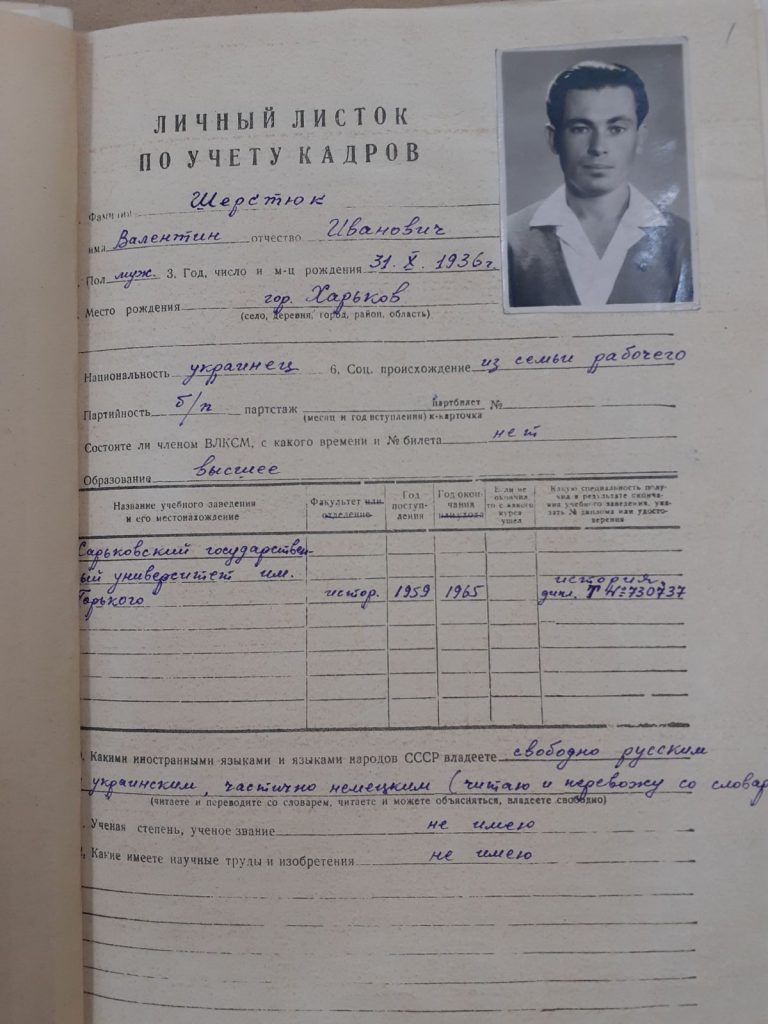 1
ЛИЧНЫЙ ЛИСТОК
ПО УЧЕТУ КАДРОВ
Фамилия Шерстюк
имя Валентин отчество Иванович
Пол муж. 3. Год, число и м-ц рождения 31. X. 1936 г.
Место рождения гор. Харьков
(село, деревня, город, район, область)
Национальность украинец 6. Соц. происхождение из семьи рабочего
Партийность б/п партстаж партбилет №
(месяц и год вступления) к-карточка
Состоите ли членом ВЛКСМ, с какого времени и № билета нет
Образование высшее
Название учебного заведения и его местонахождение
Факультет или отделение
Год поступ-ления
Год окон-чания или ухода
Если не окончил, то с какого курса ушел
Какую специальность полу-чил в результате оконча-ния учебного заведения, ука-зать № диплома или удосто-верения
Харьковский государствен-
ый университет им. история,
Горького истор. 1959 1965 дипл. Т № 730737
. Какими иностранными языками и языками народов СССР владеете свободно русским
украинским, частично немецким (читаю и перевожу со словар
(читаете и переводите со словарем, читаете и можете объясняться, владеете свободно)
. Ученая степень, ученое звание не имею
2. Какие имеете научные труды и изобретения не имею